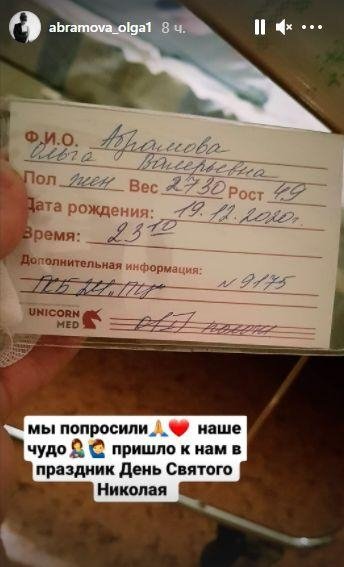 abramova_olga1 8 ч.
Ф.И.О. Абрамова
Ольга Валерьевна
Пол жен Вес 2730 Рост 49
Дата рождения: 19.12.2020г.
Время: 23 10
Дополнительная информация:
N 9175
UNICORN
MED
мы попросили🙏❤️ наше
чудо🤱🙋‍♂️ пришло к нам в
праздник День Святого
Николая